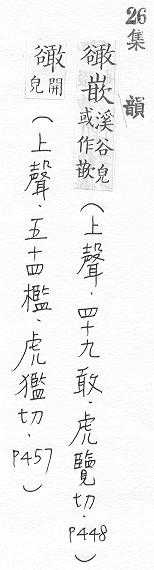 26
集韻
𧯆嵌谿谷皃或作嵌(上聲．四十九敢．虎覽切．P448)
𧯆開皃(上聲．五十四檻．虎獥切．P457)